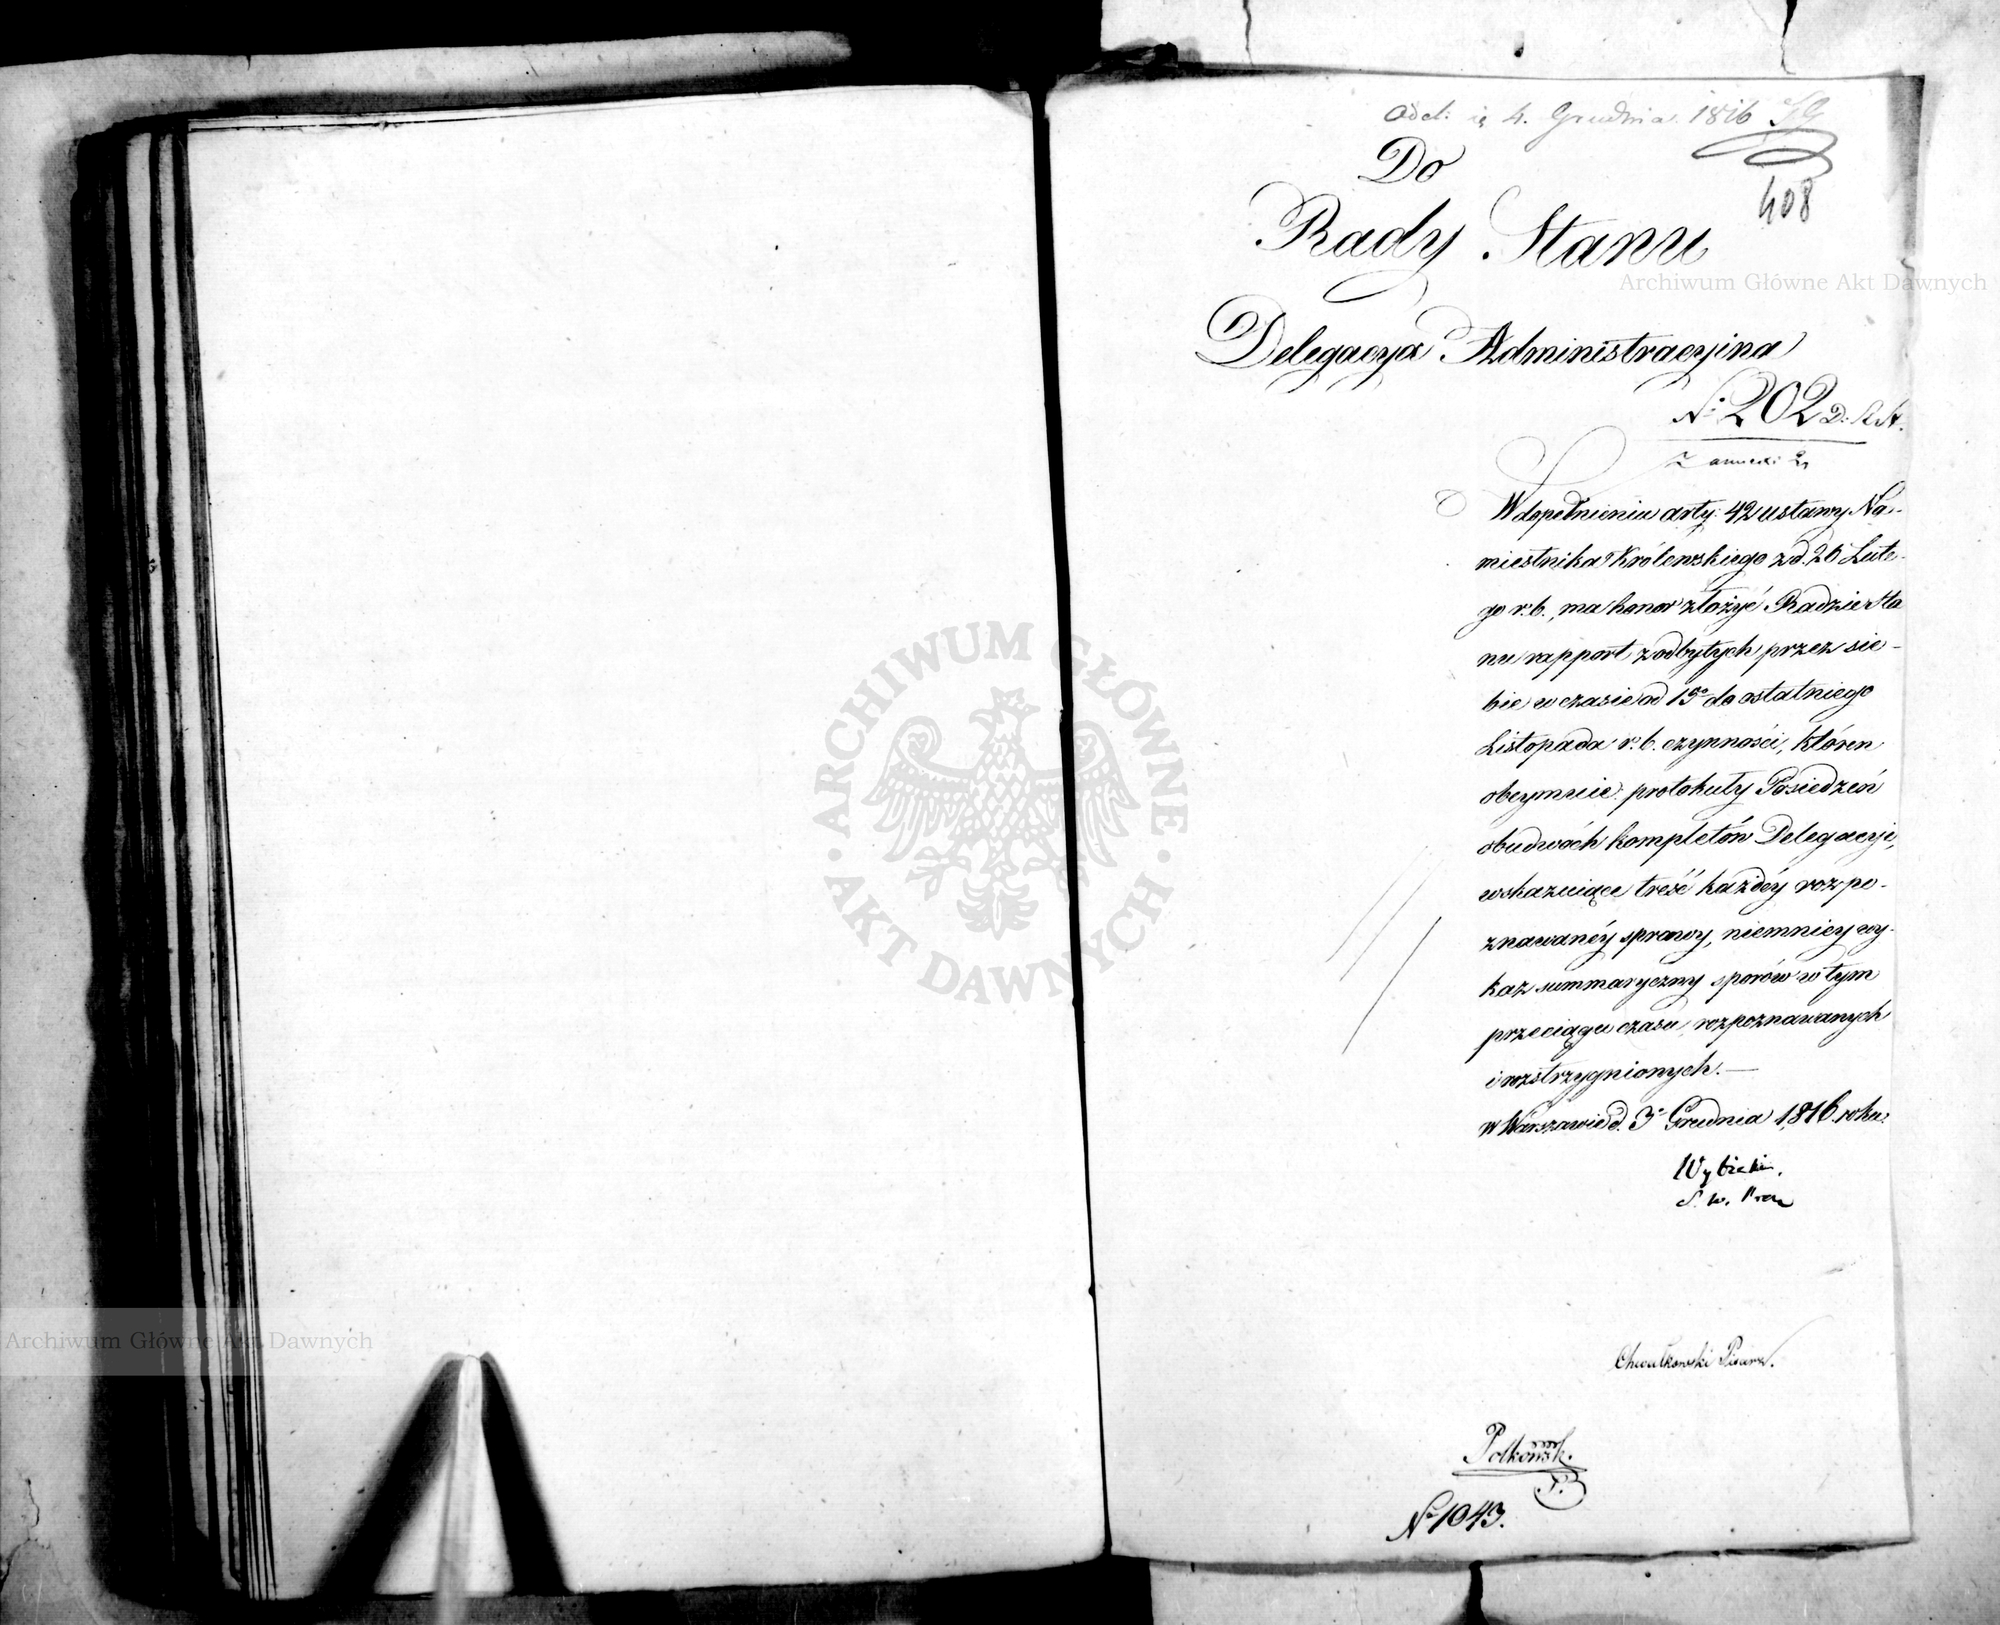 Odel: ię 4. Grudnia 1816 SG
Do
408
Rady Stanu
Archiwum Główne Akt Dawnych
Delegacya Administracyjna
N: 202 D: R.St.
W dopełnieniu arty: 42 ustawy Na-
miestnika Królewskiego z d. 26 Lute-
go r. b., ma honor złożyć Radzie Sta
nu rapport z odbytych przez sie-
bie w czasie od 15o do ostatniego
Listopada r. b. czynności, któren
obeymuie protokuły Posiedzeń
obudwóch kompletów Delegacyi,
wskazuiące treść każdéy rozpo-
znawanéy sprawy, niemniey wy-
kaz summaryczny sporów w tym
przeciągu czasu rozpoznawanych
i rozstrzygnionych.—
w Warszawie d. 3o Grudnia 1816. roku.
Wybicki.
S. W. Prez
Chwałkowski Pisarz.
Polkowsk.
N 1043.
ARCHIWUM GŁÓWNE
AKT DAWNYCH
Archiwum Główne Akt Dawnych